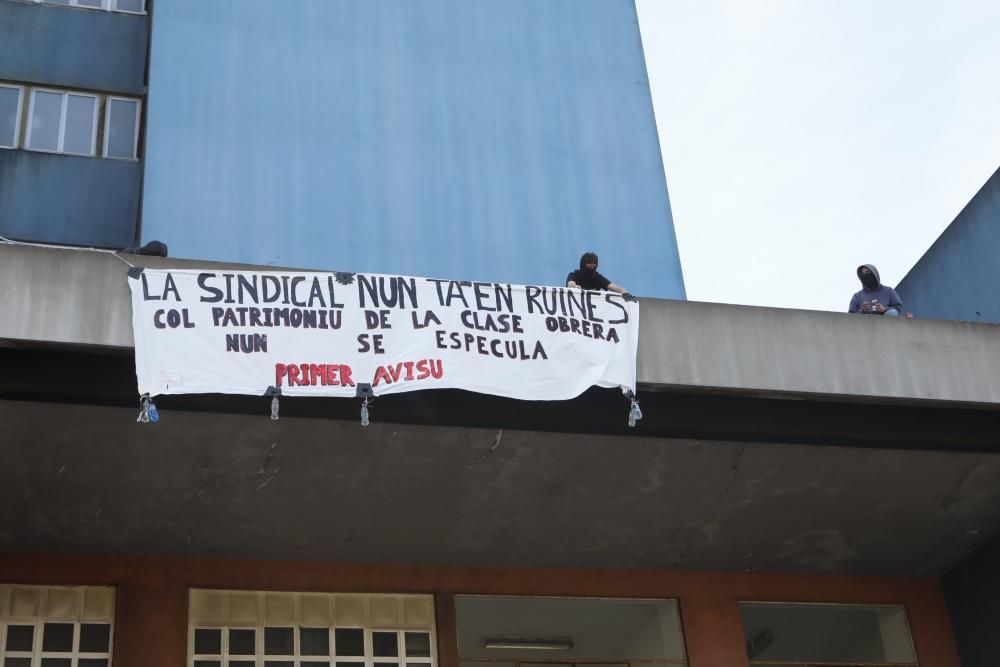 LA SINDICAL NUN TA EN RUINES
COL PATRIMONIU DE LA CLASE OBRERA
NUN SE ESPECULA
PRIMER AVISU